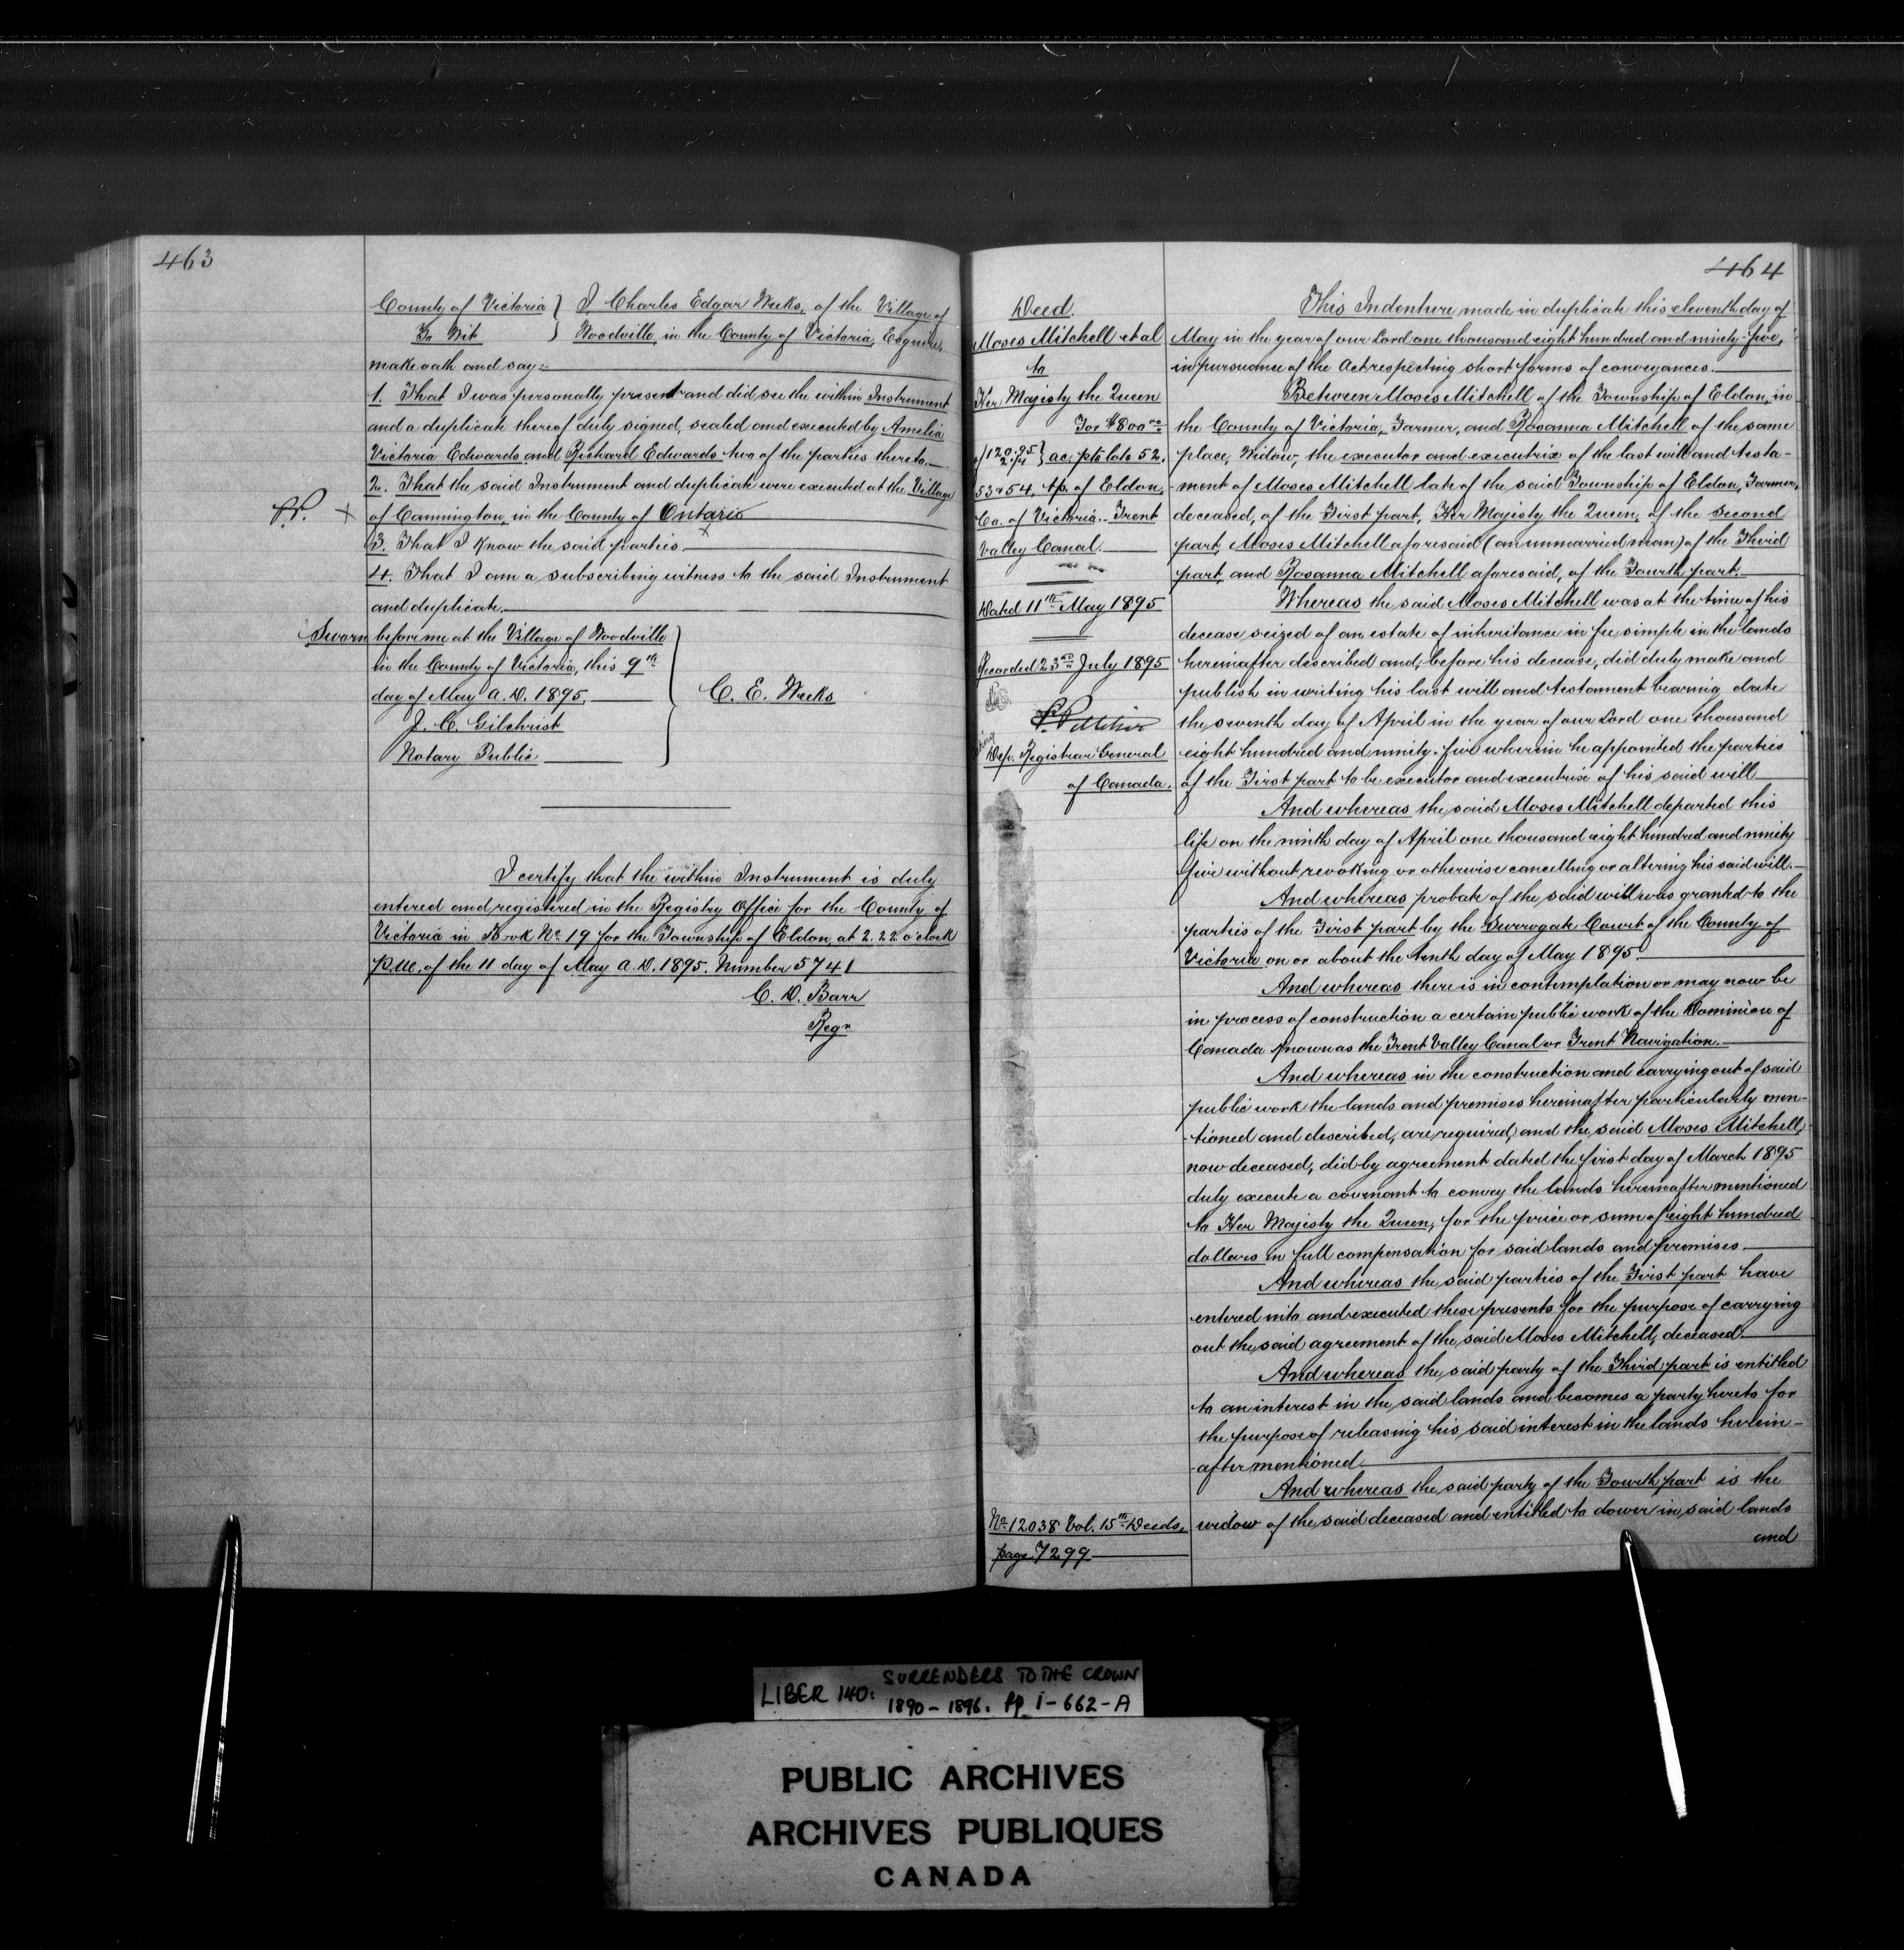 463
County of Victoria } I Charles Edgar Weeks, of the Village of
To Wit } Woodville, in the County of Victoria, Esquire,
make oath and say:-
1. That I was personally present and did see the within Instrument
and a duplicate thereof duly signed, sealed and executed by Amelia
Victoria Edwards and Richard Edwards two of the parties thereto.
2. That the said Instrument and duplicate were executed at the Village
of Cannington, in the County of Ontario
3. That I know the said parties.
4. That I am a subscribing witness to the said Instrument
and duplicate.
Sworn before me at the Village of Woodville
in the County of Victoria, this 9th
day of May A.D. 1895.
C. E. Weeks
J. C. Gilchrist
Notary Public
I certify that the within Instrument is duly
entered and registered in the Registry Office for the County of
Victoria in Book No. 19 for the Township of Eldon, at 2.22 o'clock
P.M. of the 11 day of May A.D. 1895. Number 5741
C. D. Barr
Regr
464
Deed.
Moses Mitchell et al
to
Her Majesty the Queen
For $800.00
ac. pts lots 52,
53 & 54, tp. of Eldon,
Co. of Victoria.. Trent
Valley Canal.
Dated 11th May 1895
Recorded 23rd July 1895
Dep. Registrar General
of Canada.
No. 12038 Vol. 15th Deeds,
page 7299
This Indenture made in duplicate this eleventh day of
May in the year of our Lord one thousand eight hundred and ninety-five,
in pursuance of the Act respecting short forms of conveyances.
Between Moses Mitchell of the Township of Eldon, in
the County of Victoria, Farmer, and Rosanna Mitchell of the same
place, Widow, the executor and executrix of the last will and testa-
-ment of Moses Mitchell late of the said Township of Eldon, Farmer,
deceased, of the First part, Her Majesty the Queen, of the second
part, Moses Mitchell aforesaid (an unmarried man) of the Third
part and Rosanna Mitchell aforesaid, of the Fourth part.
Whereas the said Moses Mitchell was at the time of his
decease seized of an estate of inheritance in fee simple in the lands
hereinafter described and, before his decease, did duly make and
publish in writing his last will and testament bearing date
the seventh day of April in the year of our Lord one thousand
eight hundred and ninety-five wherein he appointed the parties
of the First part to be executor and executrix of his said will
And whereas the said Moses Mitchell departed this
life on the ninth day of April one thousand eight hundred and ninety
five without revoking or otherwise cancelling or altering his said will.
And whereas probate of the said will was granted to the
parties of the First part by the Surrogate Court of the County of
Victoria on or about the tenth day of May 1895
And whereas there is in contemplation or may now be
in process of construction a certain public work of the Dominion of
Canada known as the Trent Valley Canal or Trent Navigation.
And whereas in the construction and carrying out of said
public work the lands and premises hereinafter particularly men-
-tioned and described, are required, and the said Moses Mitchell,
now deceased, did by agreement dated the first day of March 1895
duly execute a covenant to convey the lands hereinafter mentioned
to Her Majesty the Queen, for the price or sum of eight hundred
dollars in full compensation for said lands and premises
And whereas the said parties of the First part have
entered into and executed these presents for the purpose of carrying
out the said agreement of the said Moses Mitchell, deceased.
And whereas the said party of the Third part is entitled
to an interest in the said lands and becomes a party hereto for
the purpose of releasing his said interest in the lands herein-
-after mentioned
And whereas the said party of the Fourth part is the
widow of the said deceased and entitled to dower in said lands
and
LIBER 140: SURRENDERS TO THE CROWN
1890-1896. pp i-662-A
PUBLIC ARCHIVES
ARCHIVES PUBLIQUES
CANADA